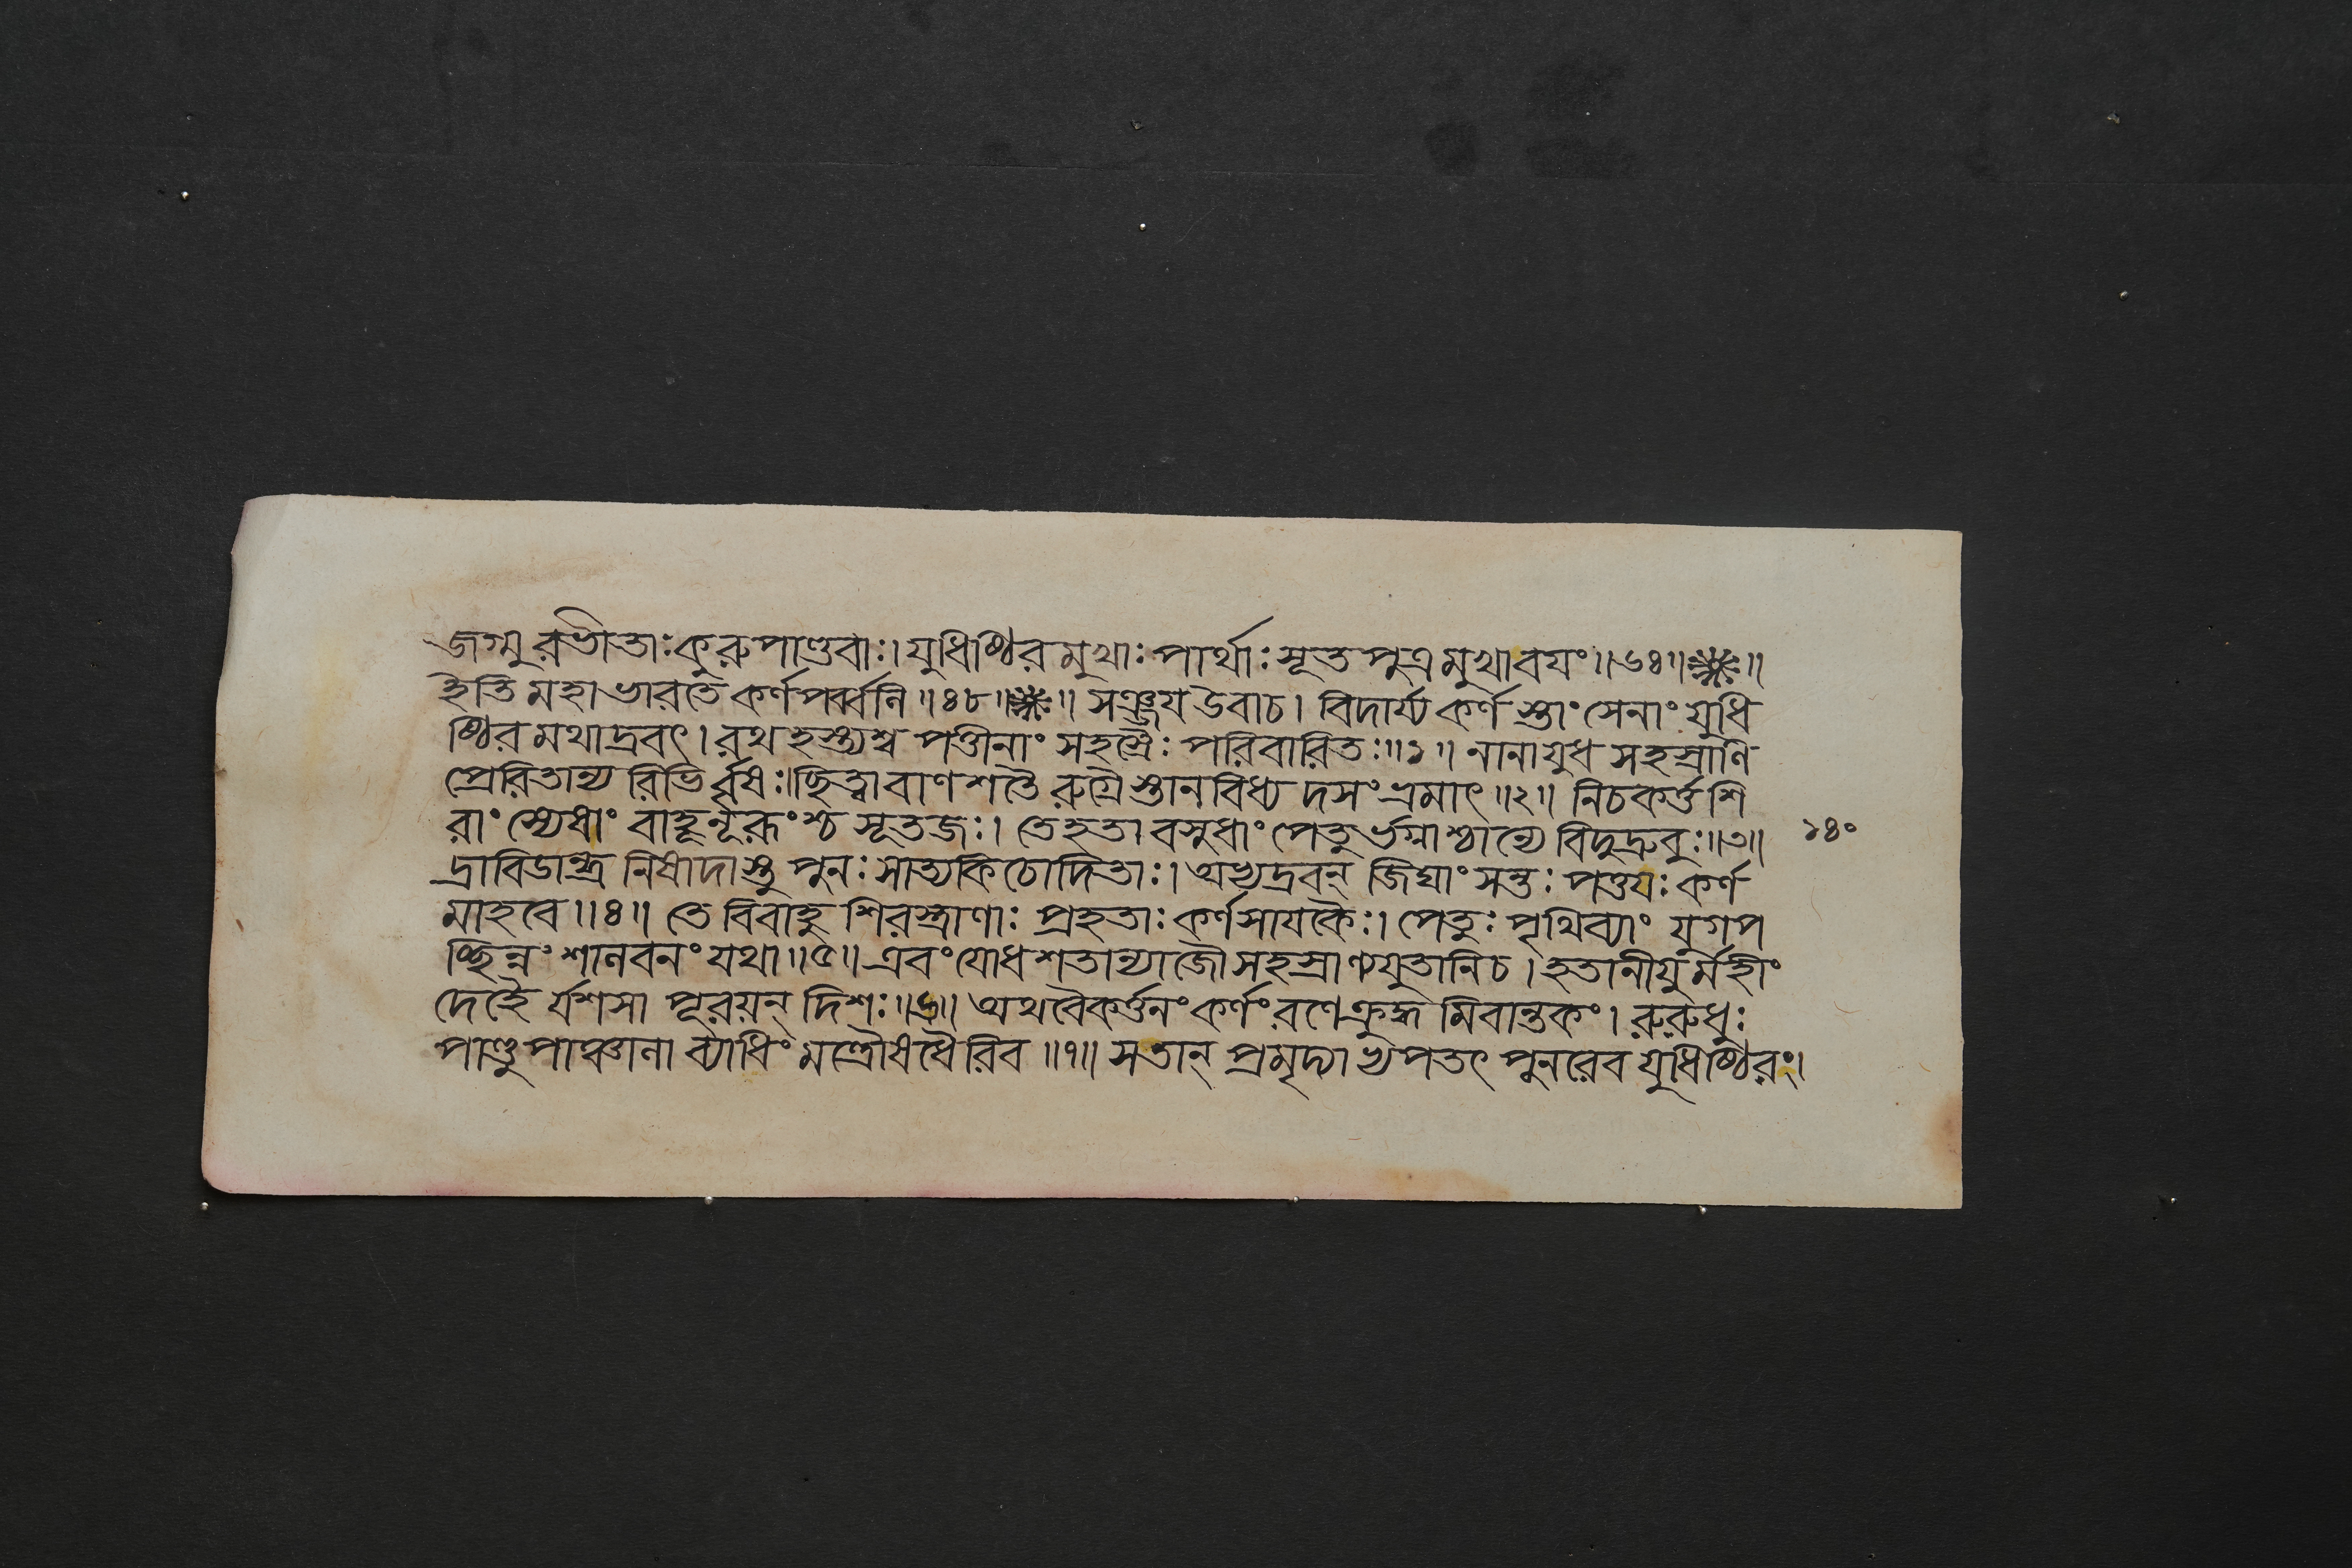 জগ্মুরভীতাঃ কুরুপাণ্ডবাঃ। যুধিষ্ঠিরমুখাঃ পার্থাঃ সূতপুত্রমুখাবযং॥৬৪॥❋॥
ইতি মহাভারতে কর্ণপর্ব্বনি॥৪৮॥❋॥ সঞ্জয উবাচ। বিদার্য্য কর্ণস্তাং সেনাং যুধি
ষ্ঠিরমথাদ্রবৎ। রথহস্ত্যশ্ব পত্তীনাং সহস্রৈঃ পরিবারিতঃ॥১॥ নানাযুধ সহস্রাণি
প্রেরিতান্য রিভির্ব্বৃষঃ। ছিত্বা বাণশতৈ রুগ্রৈস্তানবিধ্য দসংভ্রমাৎ॥২॥ নিচকর্ত্ত শি
রাংস্যেষাং বাহূনূরূংশ্চ সূতজঃ। তেহতা বসুধাং পেতুর্ভগ্নাশ্চান্যে বিদুদ্রুবুঃ॥৩॥ ১৪০
দ্রাবিডান্ধ্র নিষাদাস্তু পুনঃ সাত্যকিচোদিতাঃ। অভ্যদ্রবন্ জিঘাংসন্তঃ পত্তযঃ কর্ণ
মাহবে॥৪॥ তে বিবাহু শিরস্ত্রাণাঃ প্রহতাঃ কর্ণসাযকৈঃ। পেতুঃ পৃথিব্যাং যুগপ
চ্ছিন্নং শালবনং যথা॥৫॥ এবং যোধশতান্যাজৌ সহস্রাণ্যযুতানিচ। হতানীযুর্মহীং
দেহৈ র্যশসা পূরয়ন্ দিশঃ॥৬॥ অথবৈকর্ত্তনং কর্ণং রণেক্রুদ্ধ মিবান্তকং। রুরুধুঃ
পাণ্ডুপাঞ্চালা ব্যাধিং মন্ত্রৌষধৈরিব॥৭॥ সতান্ প্রমৃদ্যাভ্যপতৎ পুনরেব যুধিষ্ঠিরং।